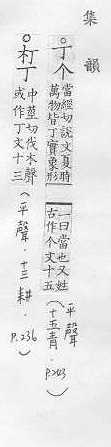 集韻
丁个
當經切說文夏時
萬物皆丁實象形
一曰當也又姓
古作个文十五
(平聲.十五青.p.243)
朾丁
中莖切伐木聲
或作丁文十三
(平聲.十三耕.p.236)